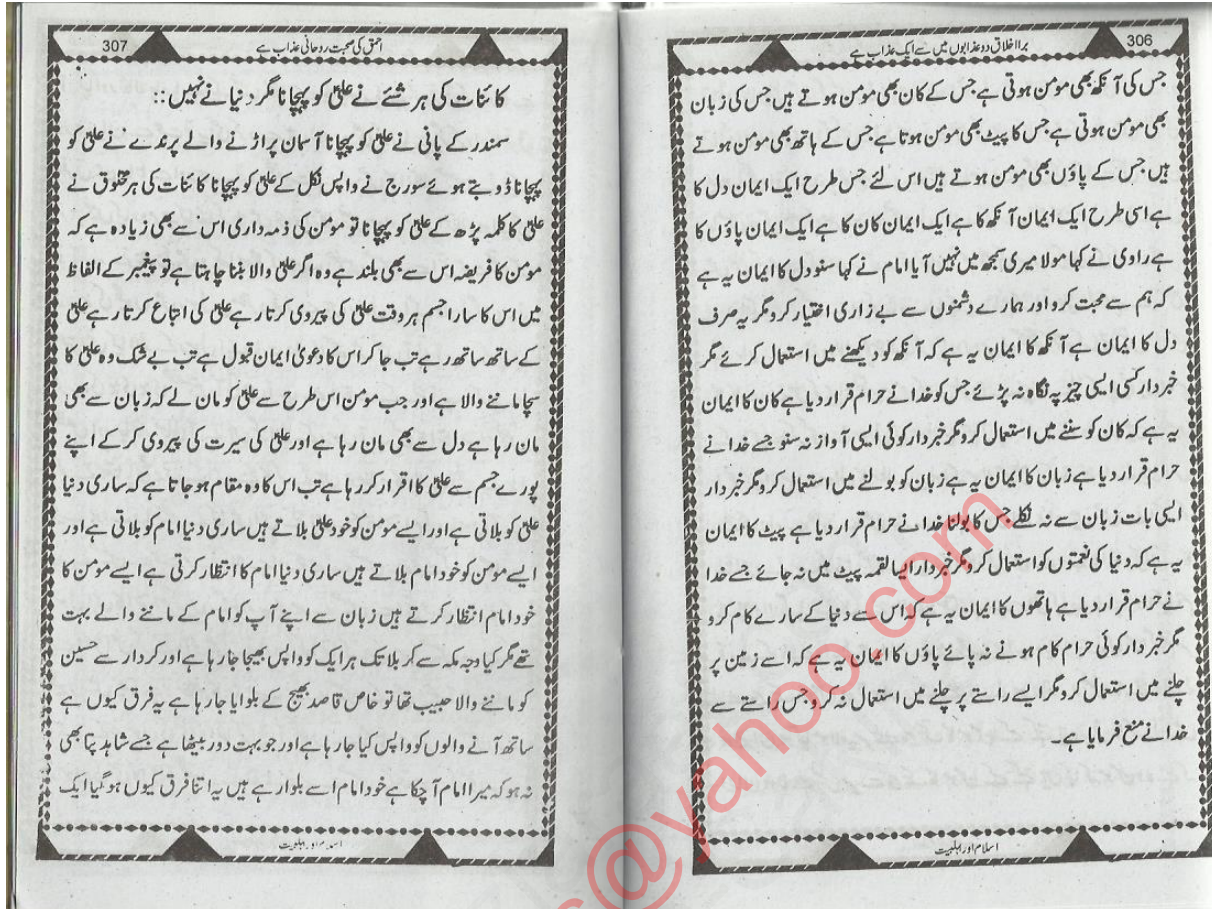 306
برا اخلاق دو عذابوں میں سے ایک عذاب ہے
جس کی آنکھ بھی مومن ہوتی ہے جس کے کان بھی مومن ہوتے ہیں جس کی زبان
بھی مومن ہوتی ہے جس کا پیٹ بھی مومن ہوتا ہے جس کے ہاتھ بھی مومن ہوتے
ہیں جس کے پاؤں بھی مومن ہوتے ہیں اس لئے جس طرح ایک ایمان دل کا
ہے اسی طرح ایک ایمان آنکھ کا ہے ایک ایمان کان کا ہے ایک ایمان پاؤں کا
ہے راوی نے کہا مولا میری سمجھ میں نہیں آیا امام نے کہا سنو دل کا ایمان یہ ہے
کہ ہم سے محبت کرو اور ہمارے دشمنوں سے بے زاری اختیار کرو مگر یہ صرف
دل کا ایمان ہے آنکھ کا ایمان یہ ہے کہ آنکھ کو دیکھنے میں استعمال کرئے مگر
خبردار کسی ایسی چیز پہ نگاہ نہ پڑئے جس کو خدا نے حرام قرار دیا ہے کان کا ایمان
یہ ہے کہ کان کو سننے میں استعمال کرو مگر خبردار کوئی ایسی آواز نہ سنو جسے خدا نے
حرام قرار دیا ہے زبان کا ایمان یہ ہے زبان کو بولنے میں استعمال کرو مگر خبردار
ایسی بات زبان سے نہ نکلے جس کا بولنا خدا نے حرام قرار دیا ہے پیٹ کا ایمان
یہ ہے کہ دنیا کی نعمتوں کو استعمال کرو مگر خبردار ایسا لقمہ پیٹ میں نہ جائے جسے خدا
نے حرام قرار دیا ہے ہاتھوں کا ایمان یہ ہے کہ اس سے دنیا کے سارے کام کرو
مگر خبردار کوئی حرام کام ہونے نہ پائے پاؤں کا ایمان یہ ہے کہ اسے زمین پر
چلنے میں استعمال کرو مگر ایسے راستے پر چلنے میں استعمال نہ کرو جس راستے سے
خدا نے منع فرمایا ہے۔
اسلام اور اہلبیت
307
احمق کی محبت روحانی عذاب ہے
کائنات کی ہر شئے نے علیؑ کو پہچانا مگر دنیا نے نہیں::
سمندر کے پانی نے علیؑ کو پہچانا آسمان پر اڑنے والے پرندے نے علیؑ کو
پہچانا ڈوبتے ہوئے سورج نے واپس نکل کے علیؑ کو پہچانا کائنات کی ہر مخلوق نے
علیؑ کا کلمہ پڑھ کے علیؑ کو پہچانا تو مومن کی ذمہ داری اس سے بھی زیادہ ہے کہ
مومن کا فریضہ اس سے بھی بلند ہے وہ اگر علیؑ والا بننا چاہتا ہے تو پیغمبر کے الفاظ
میں اس کا سارا جسم ہر وقت علیؑ کی پیروی کرتا رہے علیؑ کی اتباع کرتا رہے علیؑ
کے ساتھ ساتھ رہے تب جا کر اس کا دعویٰ ایمان قبول ہے تب بے شک وہ علیؑ کا
سچا ماننے والا ہے اور جب مومن اس طرح سے علیؑ کو مان لے کہ زبان سے بھی
مان رہا ہے دل سے بھی مان رہا ہے اور علیؑ کی سیرت کی پیروی کر کے اپنے
پورے جسم سے علیؑ کا اقرار کر رہا ہے تب اس کا وہ مقام ہو جاتا ہے کہ ساری دنیا
علیؑ کو بلاتی ہے اور ایسے مومن کو خود علیؑ بلاتے ہیں ساری دنیا امام کو بلاتی ہے اور
ایسے مومن کو خود امام بلاتے ہیں ساری دنیا امام کا انتظار کرتی ہے ایسے مومن کا
خود امام انتظار کرتے ہیں زبان سے اپنے آپ کو امام کے ماننے والے بہت
تھے مگر کیا وجہ مکہ سے کربلا تک ہر ایک کو واپس بھیجا جا رہا ہے اور کردار سے حسین
کو ماننے والا حبیب تھا تو خاص قاصد بھیج کے بلوایا جا رہا ہے یہ فرق کیوں ہے
ساتھ آنے والوں کو واپس کیا جا رہا ہے اور جو بہت دور بیٹھا ہے جسے شاہد پتا بھی
نہ ہو کہ میرا امام آ چکا ہے خود امام اسے بلوا رہے ہیں یہ اتنا فرق کیوں ہو گیا ایک
اسلام اور اہلبیت
@yahoo.com